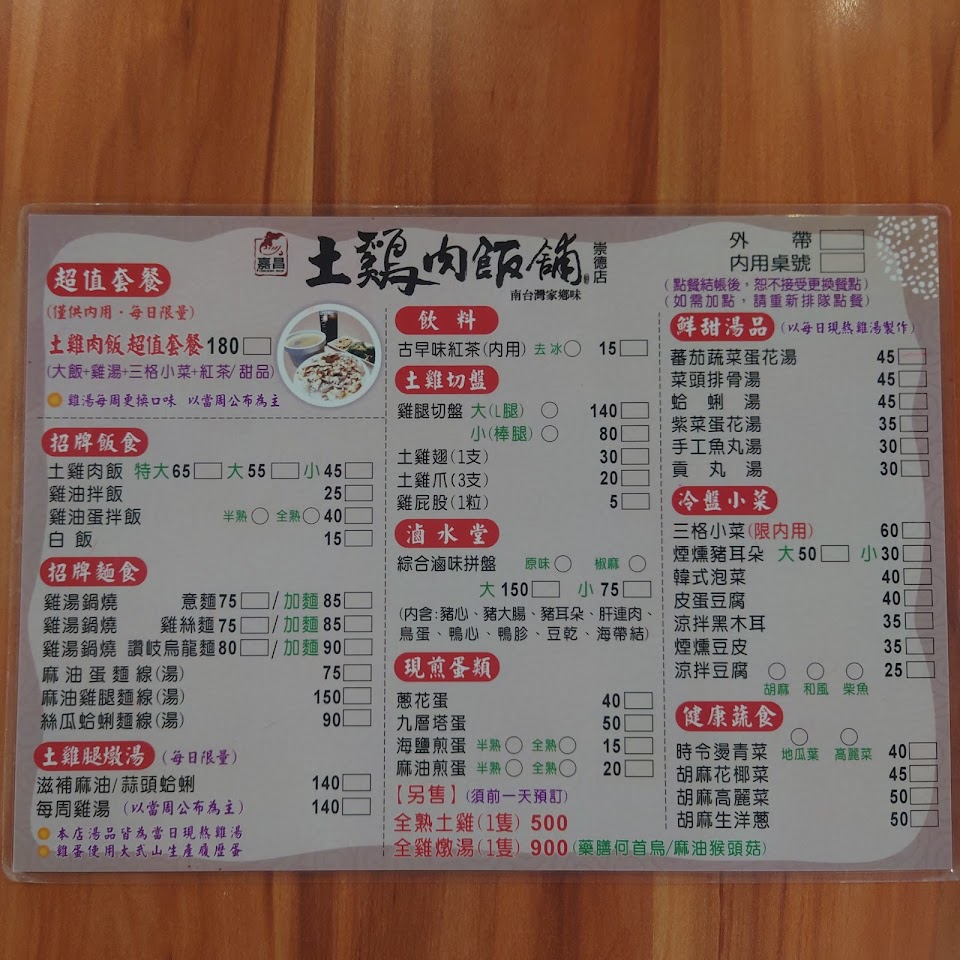 嘉昌
土鷄肉飯舖
崇德店
南台灣家鄉味
外 帶
內用桌號
(點餐結帳後，恕不接受更換餐點)
(如需加點，請重新排隊點餐)
超值套餐
(僅供內用·每日限量)
土雞肉飯超值套餐180
(大飯+雞湯+三格小菜+紅茶/甜品)
雞湯每周更換口味 以當周公布為主
招牌飯食
土雞肉飯 特大65 大55 小45
雞油拌飯 25
雞油蛋拌飯 半熟 全熟 40
白飯 15
招牌麵食
雞湯鍋燒 意麵75/加麵85
雞湯鍋燒 雞絲麵75/加麵85
雞湯鍋燒 讚岐烏龍麵80/加麵90
麻油蛋麵線(湯) 75
麻油雞腿麵線(湯) 150
絲瓜蛤蜊麵線(湯) 90
土雞腿燉湯 (每日限量)
滋補麻油/蒜頭蛤蜊 140
每周雞湯 (以當周公布為主) 140
本店湯品皆為當日現熬雞湯
雞蛋使用大武山生產履歷蛋
飲料
古早味紅茶(內用) 去冰 15
土雞切盤
雞腿切盤 大(L腿) 140
小(棒腿) 80
土雞翅(1支) 30
土雞爪(3支) 20
雞屁股(1粒) 5
滷水堂
綜合滷味拼盤 原味 椒麻
大150 小75
(內含:豬心、豬大腸、豬耳朵、肝連肉、
鳥蛋、鴨心、鴨胗、豆乾、海帶結)
現煎蛋類
蔥花蛋 40
九層塔蛋 50
海鹽煎蛋 半熟 全熟 15
麻油煎蛋 半熟 全熟 20
【另售】(須前一天預訂)
全熟土雞(1隻) 500
全雞燉湯(1隻) 900(藥膳何首烏/麻油猴頭菇)
鮮甜湯品 (以每日現熬雞湯製作)
蕃茄蔬菜蛋花湯 45
菜頭排骨湯 45
蛤蜊湯 45
紫菜蛋花湯 35
手工魚丸湯 30
貢丸湯 30
冷盤小菜
三格小菜(限內用) 60
煙燻豬耳朵 大50 小30
韓式泡菜 40
皮蛋豆腐 40
涼拌黑木耳 35
煙燻豆皮 35
涼拌豆腐 25
胡麻 和風 柴魚
健康蔬食
時令燙青菜 地瓜葉 高麗菜 40
胡麻花椰菜 45
胡麻高麗菜 50
胡麻生洋蔥 50